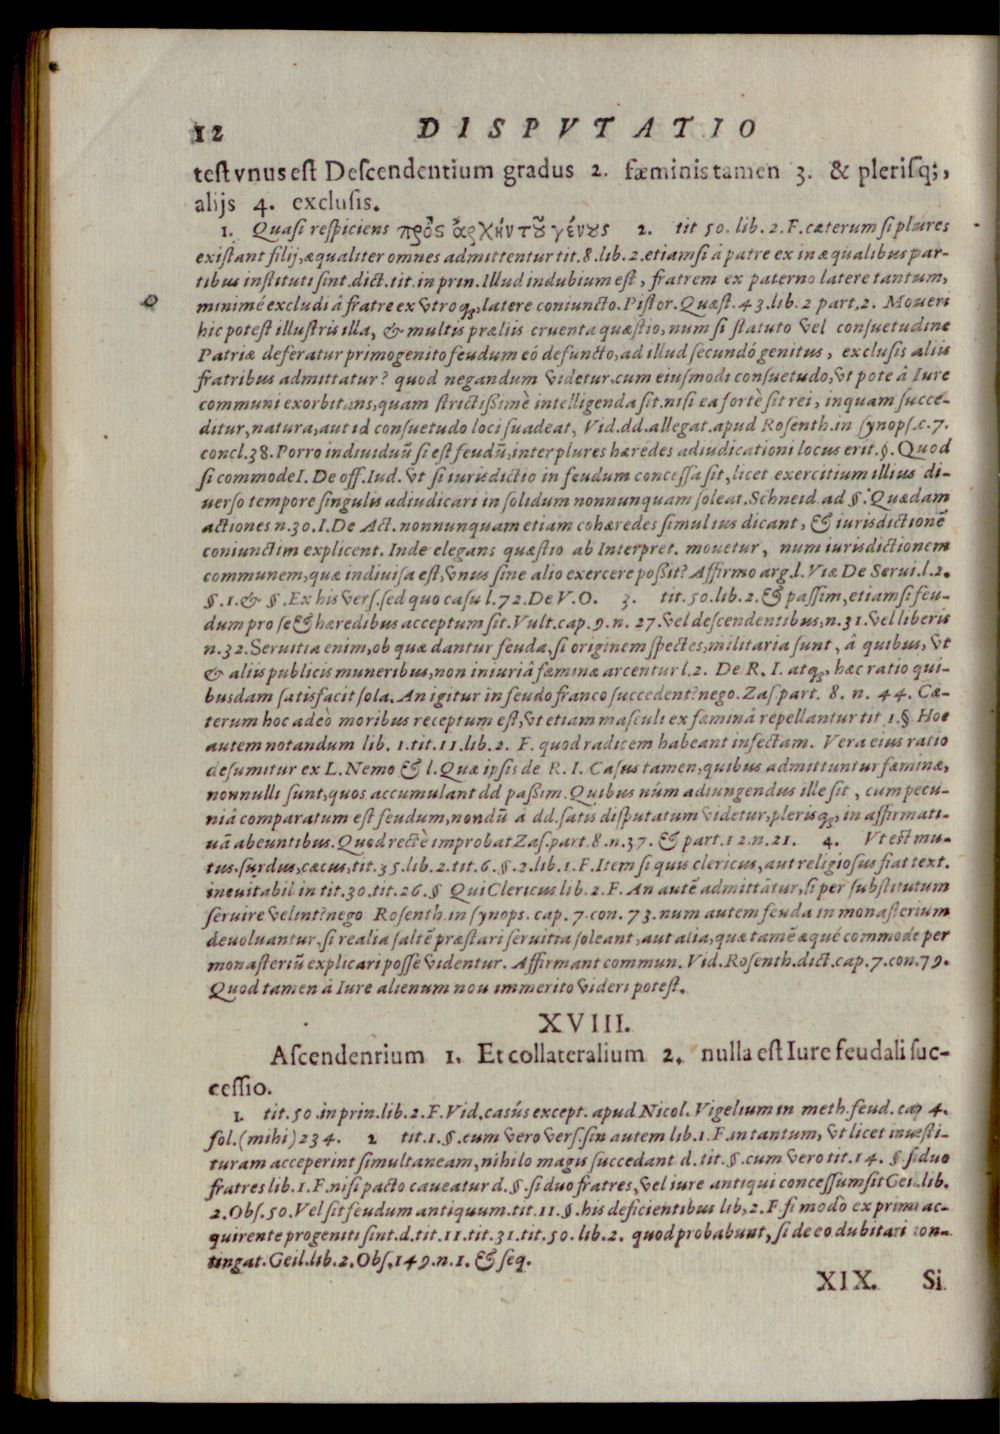 12 DISPVTATIO
test vnus est Descendentium gradus 2. fæminis tamen 3. & plerisq;,
alijs 4. exclusis.
1. Quasi respiciens πρὸς ἀρχήν τοῦ γένους 2. tit 50. lib. 2. F. cæterum si plures
existant filij, æqualiter omnes admittentur tit. 8. lib. 2. etiamsi â patre ex inæqualibus par-
tibus instituti sint. dict. tit. in prin. Illud indubium est, fratrem ex paterno latere tantum,
minimé excludi â fratre ex vtroq;, latere coniuncto. Pistor. Quæst. 43. lib. 2 part. 2. Moueri
hic potest illustris illa, & multis præliis cruenta quæstio, num si statuto vel consuetudine
Patriæ deferatur primogenito feudum eó defuncto, ad illud secundó genitus, exclusis aliis
fratribus admittatur? quod negandum videtur, cum eiusmodi consuetudo, vt pote â Iure
communi exorbitans, quam strictißimè intelligenda sit. nisi ea fortè sit rei, inquam succe-
ditur, natura, aut id consuetudo loci suadeat, Vid. dd. allegat. apud Rosenth. in synops. c. 7.
concl. 38. Porro indiuiduũ si est feudũ, inter plures hæredes adiudicationi locus erit. §. Quod
si commode I. De off. Iud. vt si iurisdictio in feudum concessa sit, licet exercitium illius di-
uerso tempore singulis adiudicari in solidum nonnunquam soleat. Schneid. ad §. Quædam
actiones n. 30. I. De Act. nonnunquam etiam cohæredes simul ius dicant, & iurisdictionẽ
coniunctim explicent. Inde elegans quæstio ab Interpret. mouetur, num iurisdictionem
communem, quæ indiuisa est, vnus sine alio exercere poßit? Affirmo arg. l. Viæ De Serui. l. 2.
§. 1. & §. Ex his vers. sed quo casu l. 72. De V. O. 3. tit. 50. lib. 2. & passim, etiamsi feu-
dum pro se & hæredibus acceptum sit. Vult. cap. 9. n. 27. vel descendentibus, n. 31. vel liberis
n. 32. Seruitia enim, ob quæ dantur feuda, si originem spectes, militaria sunt, â quibus, vt
& aliis publicis muneribus, non iniuriâ fæminæ arcentur l. 2. De R. I. atq;, hæc ratio qui-
busdam satisfacit sola. An igitur in feudo franco succedent? nego. Zas. part. 8. n. 44. Cæ-
terum hoc adeò moribus receptum est, vt etiam masculi ex fæminâ repellantur tit 1. § Hoc
autem notandum lib. 1. tit. 11. lib. 2. F. quod radicem habeant infectam. Vera eius ratio
desumitur ex L. Nemo & l. Quæ ipsis de R. I. Casus tamen, quibus admittuntur fæminæ,
nonnulli sunt, quos accumulant dd paßim. Quibus num adiungendus ille sit, cum pecu-
niâ comparatum est feudum, nondũ â dd. satis disputatum videtur, plerisq;, in affirmati-
uã abeuntibus. Quod rectè improbat Zas. part. 8. n. 37. & part. 12. n. 21. 4. Vt est mu-
tus, surdus, cæcus, tit. 35. lib. 2. tit. 6. §. 2. lib. 1. F. Item si quis clericus, aut religiosus fiat text.
ineuitabil in tit. 30. tit. 26. § Qui Clericus lib. 2. F. An autẽ admittãtur, si per substitutum
seruire velint? nego Rosenth. in synops. cap. 7. con. 73. num autem feuda in monasterium
deuoluantur, si realia saltẽ præstari seruitia soleant, aut alia, quæ tamẽ æqué commode per
monasteriũ explicari posse videntur. Affirmant commun. Vid. Rosenth. dict. cap. 7. con. 79.
Quod tamen â Iure alienum nou immerito videri potest.
XVIII.
Ascendenrium 1. Et collateralium 2. nulla est Iure feudali suc-
cessio.
1. tit. 50. in prin. lib. 2. F. Vid. casús except. apud Nicol. Vigelium in meth. feud. cap 4.
fol. (mihi) 234. 2 tit. 1. §. cum vero vers. sin autem lib. 1. F. in tantum, vt licet inuesti-
turam acceperint simultaneam, nihilo magis succedant d. tit. §. cum vero tit. 14. § si duo
fratres lib. 1. F. nisi pacto caueatur d. §. si duo fratres, vel iure antiqui concessum sit Geil. lib.
2. Obs. 50. Vel sit feudum antiquum. tit. 11. §. his deficientibus lib, 2. F. si modò ex primi ac-
quirente progeniti sint. d. tit. 11. tit. 31. tit. 50. lib. 2. quod probabunt, si de eo dubitari con-
tingat. Geil. lib. 2. Obs. 149. n. 1. & seq.
XIX. Si